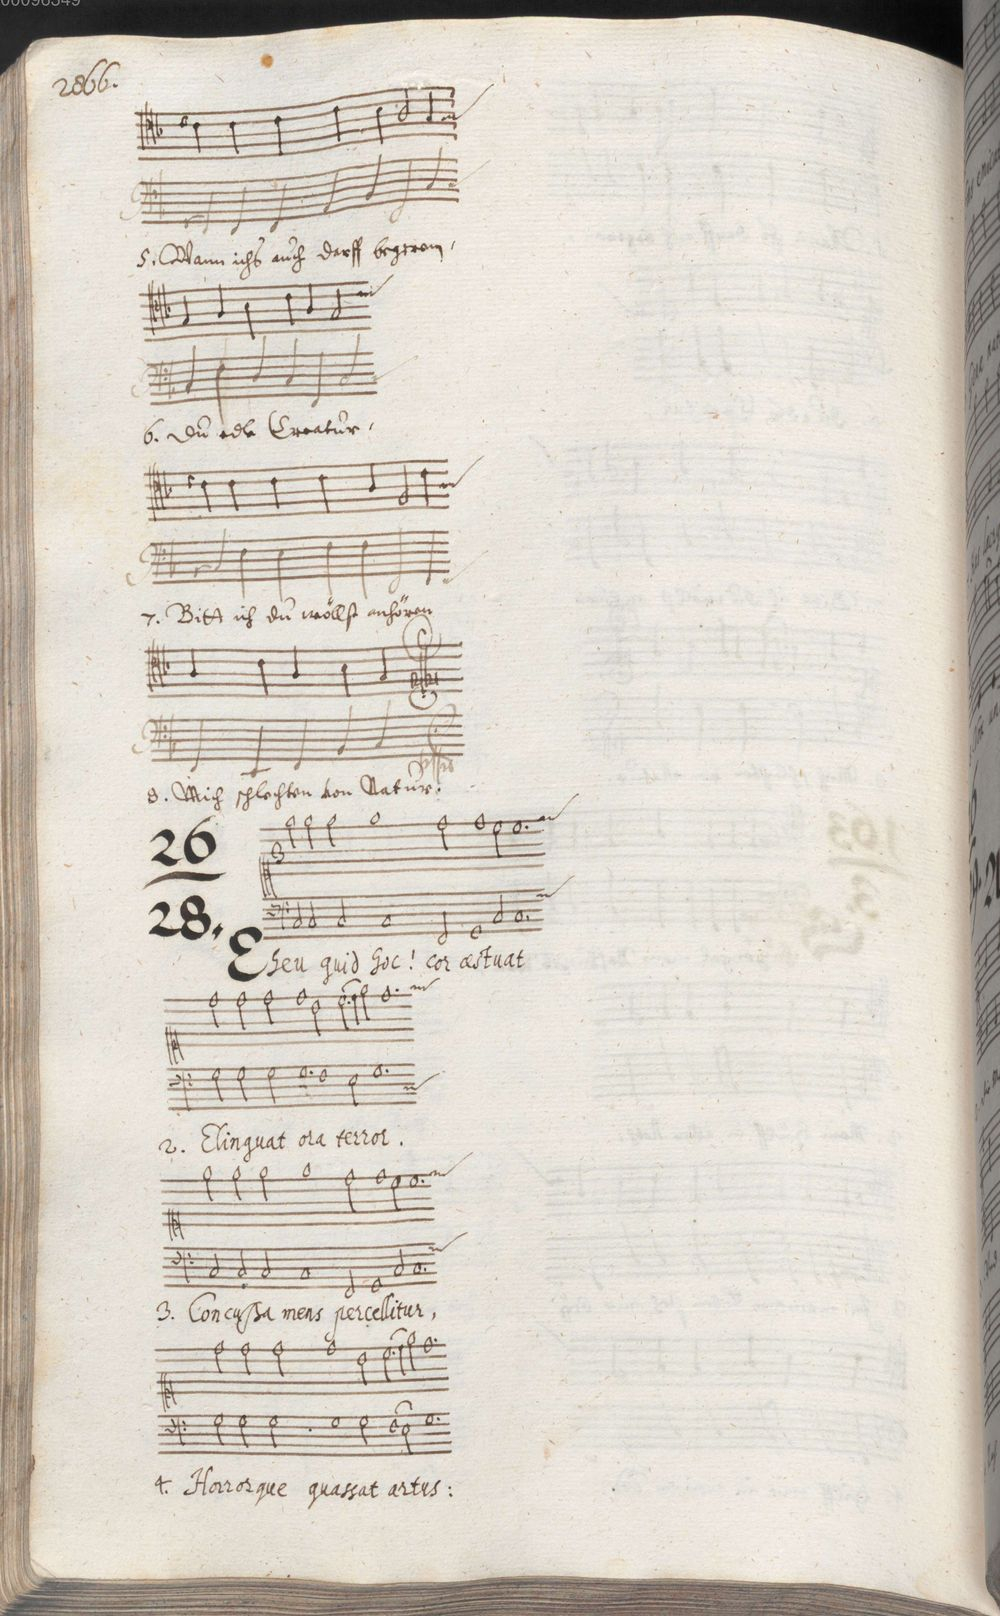 2866.
5. Wann ichs auch derff begeren,
6. Du edle Creatur,
7. Bitt ich du wöllst anhören
8. Mich schlechten von Natur.
26
28.
Eheu quid hoc! cor æstuat
2. Elinguat ora terror.
3. Concussa mens percellitur,
4. Horrorque quassat artus: